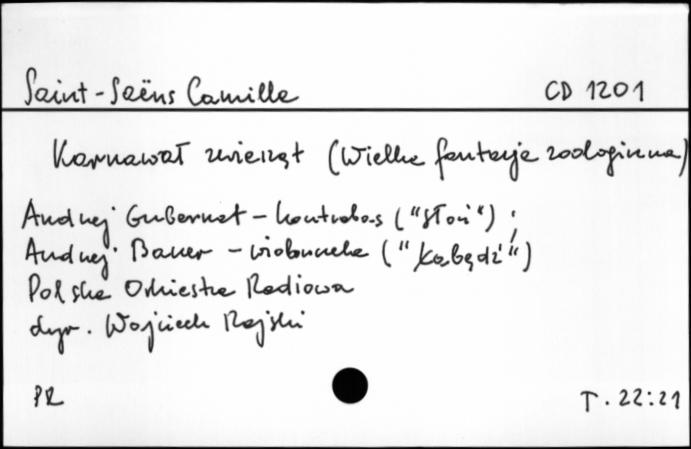 Saint-Saëns Camille CD 1201
Karnawał zwierząt (Wielka fantazja zoologiczna)
Andrzej Gubernat - kontrabas ("Słoń");
Andrzej Bauer - wiolonczela ("Łabędź")
Polska Orkiestra Radiowa
dyr. Wojciech Rajski
PR T. 22:21